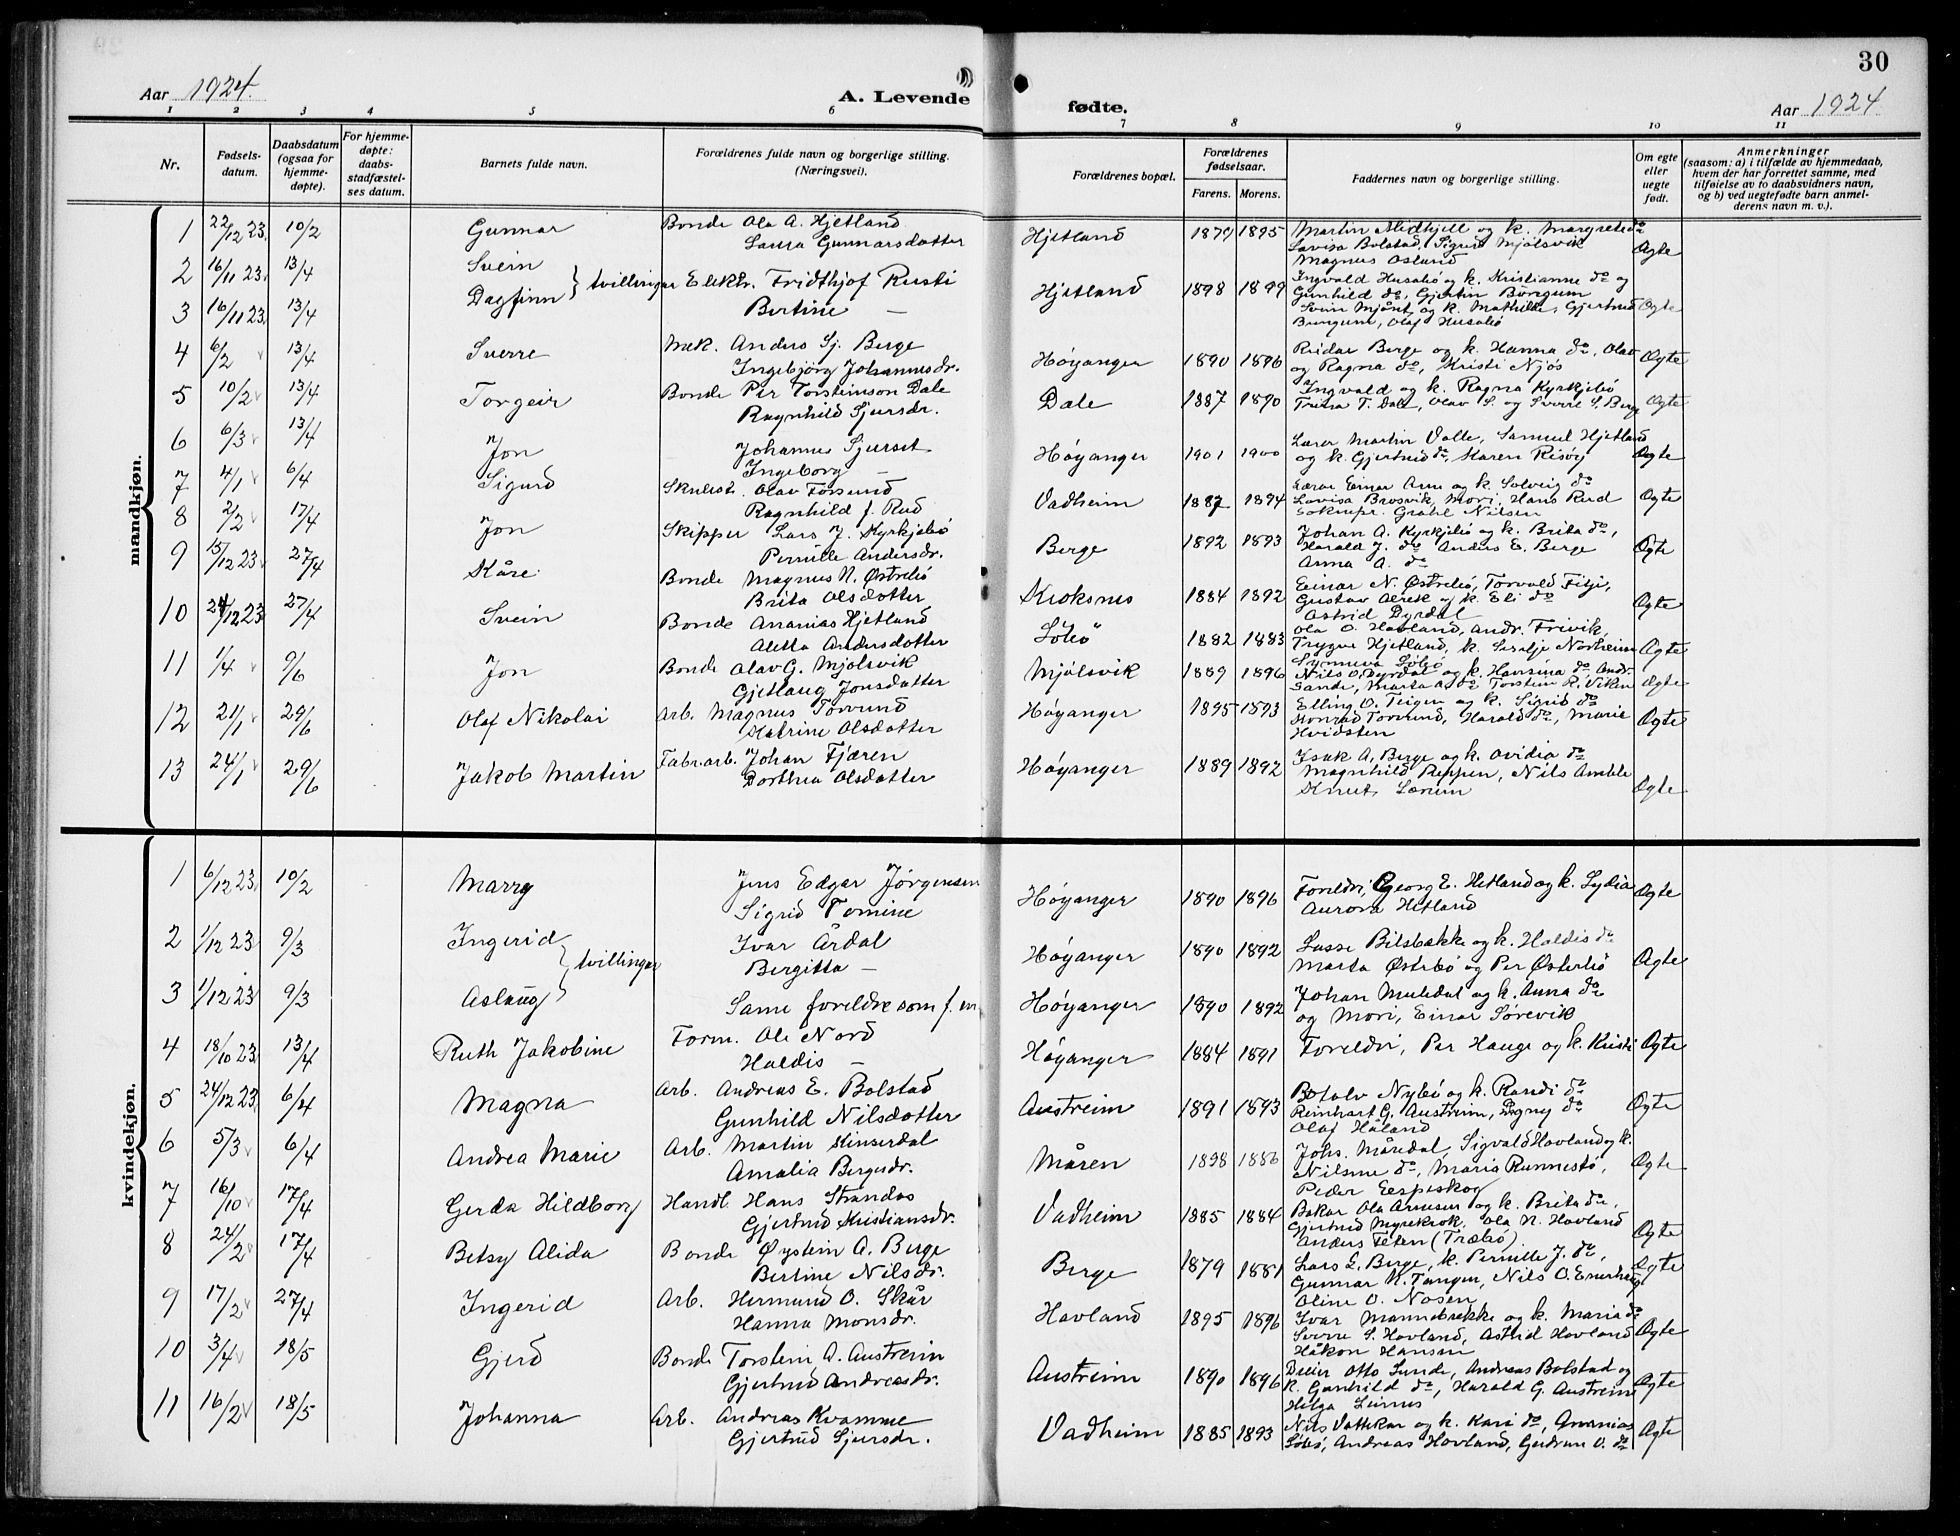 30
Aar 1924. A. Levende fødte. Aar 1924
1 2 3 4 5 6 7 8 9 10 11
Nr. Fødselsdatum. Daabsdatum (ogsaa for hjemmedøpte). For hjemmedøpte: daabsstadfæstelses datum. Barnets fulde navn. Forældrenes fulde navn og borgerlige stilling. (Næringsvei). Forældrenes bopæl. Forældrenes fødselsaar. Farens. Morens. Faddernes navn og borgerlige stilling. Om egte eller uegte født. Anmerkninger (saasom: a) i tilfælde av hjemmedaab, hvem der har forrettet samme, med tilføielse av to daabsvidners navn, og b) ved uegtefødte barn anmelderens navn m. v.).
mandkjøn.
1 22/12 23. 10/2 Gunnar Bonde Ola A. Hjetland Hjetland 1879 1895 Martin Midthjell og k. Margrete do
Laura Gunnarsdotter Lovisa Bolstad, Sigrid Mjølsvik Ogte
Magnus Osland
2 16/11 23. 13/4 Svein } tvillingar Elektr. Fridthjof Rusti Hjetland 1898 1899 Ingvald Husabø og k. Kristianne do og
Gunhild do, Gjertin Børgum
3 16/11 23. 13/4 Dagfinn Bertine — Svein Mjånt og k. Mathilde, Gjertrud Ogte
Børgum, Olaf Husabø
4 6/2 13/4 Sverre Mek. Anders Sj. Berge Høyanger 1890 1896 Reidar Berge og k. Hanna do, Olav Ogte
Ingebjørg Johannesdr. og Ragna do, Kristi Njøs
5 10/2 13/4 Torgeir Bonde Per Torsteinson Dale Dale 1887 1890 Ingvald og k. Ragna Kyrkjebø Ogte
Ragnhild Sjursdr. Trina T. Dale, Olav S. og Sverre S. Berge
6 6/3 13/4 Jon Johannes Sjurset Høyanger 1901 1900 Lærer Martin Valle, Samuel Hjetland Ogte
Ingeborg — og k. Gjertrud do, Karen Risøy
7 4/1 6/4 Sigurd Skulest. Olav Torsund Vadheim 1887 1894 Lærar Einar Arne og k. Solveig do Ogte
Ragnhild f. Rud Lovisa Brosvik, Mori, Hans Rud
Nilsen
8 2/2 17/4 Jon Skipper Lars J. Kyrkjebø Berge 1892 1893 Johan A. Kyrkjebø og k. Brita do, Ogte
Pernille Andersdr. Harald J. do Anders E. Berge
Anna A. do
9 15/12 23 27/4 Kåre. Bonde Magnus N. Østrebø Kroksnes 1884 1892 Einar N. Østrebø, Torvald Fitje, Ogte
Brita Olsdotter Gustav og k. Eli do
Astrid Dyrdal
10 24/12 23. 27/4 Svein Bonde Ananias Hjetland Søbø 1882 1883 Ola O. Havland, Andr. Frivik, Ogte
Aletta Andersdotter Trygve Hjetland, k. Nordheim
Synneva Søbø
11 1/4 9/6 Jon Bonde Olav G. Mjølsvik Mjølsvik 1889 1896 Nils O. Dyrdal og k. Hansina do, Andr. Ogte
Gjetlaug Jonsdotter Sande, Marta A. do Torstein R. Viken
12 21/1 29/6 Olaf Nikolai Arb. Magnus Torvund Høyanger 1895 1893 Elling O. Teigen og k. Sigrid do Ogte
Katrine Olsdotter Konrad Torvund, Harald do, Maria
Hvidsten
13 24/1 29/6 Jakob Martin Fabr.arb. Johan Fjæren Høyanger 1889 1892 Isak A. Berge og k. Ovidia do Ogte
Dorthea Olsdotter Magnhild Reppen, Nils Amble
Knut Lærum
kvindekjøn.
1 6/12 23. 10/2 Marry Jens Edgar Jørgensen Høyanger 1890 1896 Foreldri, Georg E. Hetland og k. Lydia Ogte
Sigrid Tomine Aurora Hetland
2 1/12 23 9/3 Ingerid } tvillingar Ivar Årdal Høyanger 1890 1892 Lasse Bilsbakke og k. Haldis do Ogte
Bergitta — Marta Østrebø og Per Østerbø
3 1/12 23 9/3 Aslaug Same foreldre som f. nr. Høyanger 1890 1892 Johan Muledal og k. Anna do
og Mori, Einar Sørevik
4 18/10 23. 13/4 Ruth Jakobine Form. Ole Nord Høyanger 1884 1891 Foreldri, Per Hauge og k. Kristi Ogte
Haldis —
5 24/12 23. 6/4 Magna Arb. Andreas E. Bolstad Austreim 1891 1893 Botolv Nybø og k. Randi do Ogte
Gunhild Nilsdotter Reinhart G. Austreim, Dagny do
Olaf Håland
6 5/3 6/4 Andrea Marie Arb. Martin Kinserdal Måren 1898 1886 Johs. Måredal, Sigvald Hovland og k. Ogte
Amalia Bergesdr. Nilsine do, Maria Runnestø,
Peder Eespeskog
7 16/10 17/4 Gerda Hildborg Handl. Hans Strandos Vadheim 1885 1884 Bakar Ola Arnesen og k. Brita do, Ogte
Gjertrud Kristiansdr. Gjertrud Myrekrok, Ola N. Hovland
Anders Feten (Træbø).
8 24/2 17/4 Betsy Alida Bonde Øystein A. Berge Berge 1879 1881 Lars L. Berge, k. Pernille J. do, Ogte
Bertine Nilsdr. Gunnar K. Tangen, Nils O. Enerhaug
Oline O. Nosen
9 17/2 27/4 Ingerid Arb. Hermund O. Skår Havland 1895 1896 Ivar Mannebrekke og k. Maria do Ogte
Hanna Monsdr. Sverre S. Hovland, Astrid Hovland
Håkon Hansen
10 3/4 18/5 Gjerd Bonde Torstein A. Austreim Austreim 1890 1896 Otto Sunde, Andreas Bolstad og Ogte
Gjertrud Andreasdr. k. Gunhild do, Harald G. Austreim
Helga Leirnes
11 16/2 18/5 Johanna Arb. Andreas Kvamme Vadheim 1885 1893 Nils Vattekar og k. Kari do, Ananias Ogte
Gjertrud Sjursdr. Søbø, Andreas Hovland, Gudrun O. do